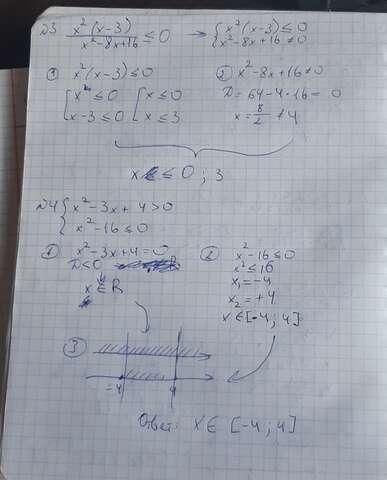 №3 x²(x-3) / x²-8x+16 ≤ 0 → { x²(x-3) ≤ 0
x²-8x+16 ≠ 0
① x²(x-3) ≤ 0
[ x² ≤ 0 [ x ≤ 0
x-3 ≤ 0 x ≤ 3
② x²-8x+16 ≠ 0
D = 64-4·16 = 0
x = 8/2 ≠ 4
x ≤ 0 ; 3
№4 { x²-3x+4 > 0
x²-16 ≤ 0
① x²-3x+4=0
D<0
x ∈ R
② x²-16 ≤ 0
x² ≤ 16
x₁ = -4
x₂ = +4
x ∈ [-4; 4]
③
-4 4
Ответ: x ∈ [-4; 4]